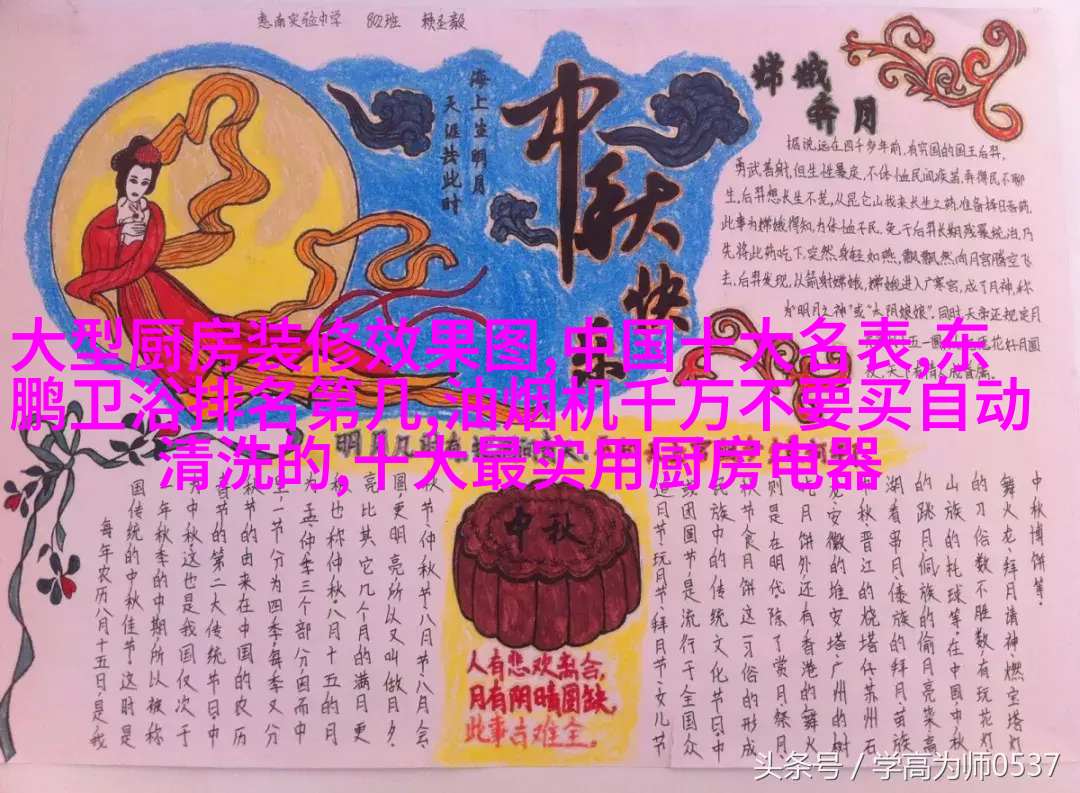 惠南实验中学 802班 赖圣毅
海上生明月
天涯共此时
中秋快乐
嫦娥
奔月
据说,远在四千多年前,有穷国的国王后羿,
勇武善射,但生性暴戾,不体恤民间疾苦,弄得民不聊
生,后羿想长生不老,从昆仑山找来长生之药,准备择日吞药,
此事为嫦娥得知,为体恤子民,免于后羿长期残暴统治,乃
先将此药吃下,突然身轻如燕,飘飘然向月宫腾空飞
去,后羿发现,以箭射嫦娥,嫦娥进入广寒宫,成了月神,称
为“明月之神”或“太阴娘娘”.同时天帝还规定月
大型厨房装修效果图,中国十大名表,东
鹏卫浴排名第几,油烟机千万不要买自动
清洗的,十大最实用厨房电器
中秋博饼等.
舞火龙、拜月请神、燃宝塔灯
的习俗数不胜数,有玩花灯
山族的托球等,在中国,中秋
的跳月,侗族的偷月亮菜,高
湖看串月,傣族的拜月,苗族
中秋,晋江的烧塔仔,苏州石
龙,安徽的堆宝塔,广州的树
吃月饼外,还有香港的舞火
则是在明代,除了赏月、祭月
秋节食月饼这一习俗的形成
民族中的传统文化节日,中
或团圆节,是流行于全国众
追月节、玩月节、拜月节、女儿节
秋节、仲秋节、八月节、八月会
圆,更明亮,所以又叫做月夕,
亮比其它几个月的满月更
秋也称仲秋,八月十五的月
为孟、仲、季三个部分,因而中
里,一节分为四季,每季又分
秋节的由来在中国的农历
春节的第二大传统节日,中
中秋,这也是我国仅次于
年秋季的中期,所以被称
国传统的中秋佳节,这时是
每年农历八月十五日,是我
中秋
人有悲欢离合,
月有阴晴圆缺,
此事古难全.
头条号 / 学高为师0537